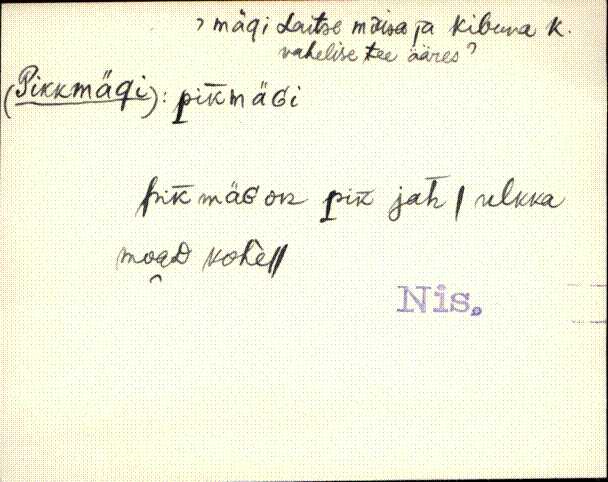 ? mägi Laitse mõisa ja Kibuna k.
vahelise tee ääres?
(Pikkmägi): pik̄mäGi
pik̄mäG on pik̄ jah | ulkka
moaD kohe||
Nis.